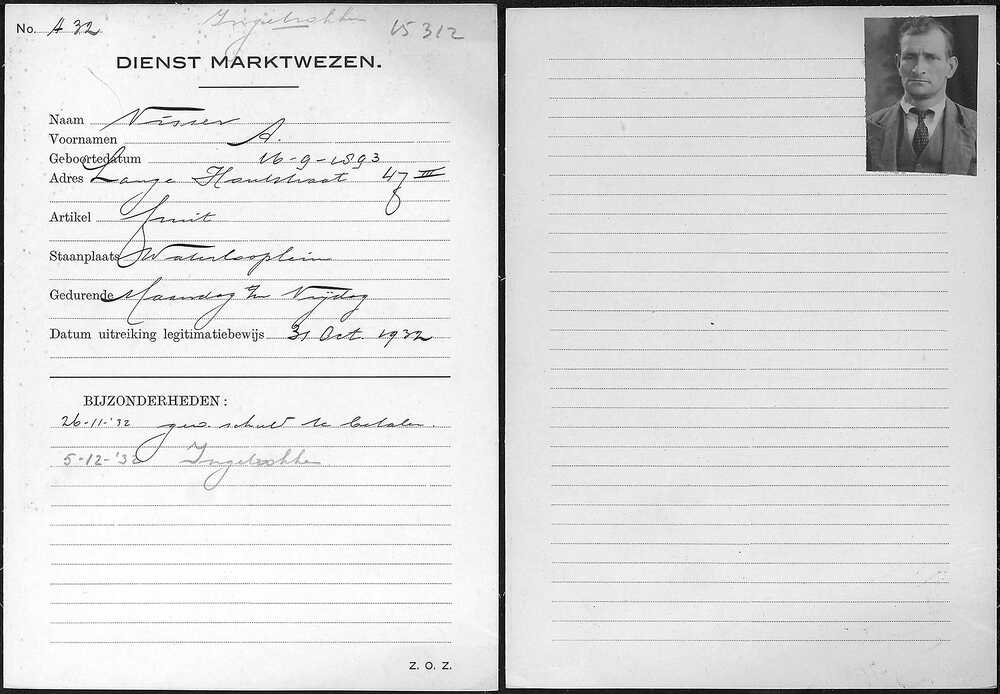 No. A 32 Ingetrokken 15312
DIENST MARKTWEZEN.
Naam Visser
Voornamen A.
Geboortedatum 16-9-1893
Adres Lange Houtstraat 47 III
Artikel fruit
Staanplaats Waterlooplein
Gedurende Maandag t/m Vrijdag
Datum uitreiking legitimatiebewijs 31 Oct. 1932
BIJZONDERHEDEN:
26-11-'32 gew. schuld te betalen.
5-12-'32 Ingetrokken
Z. O. Z.